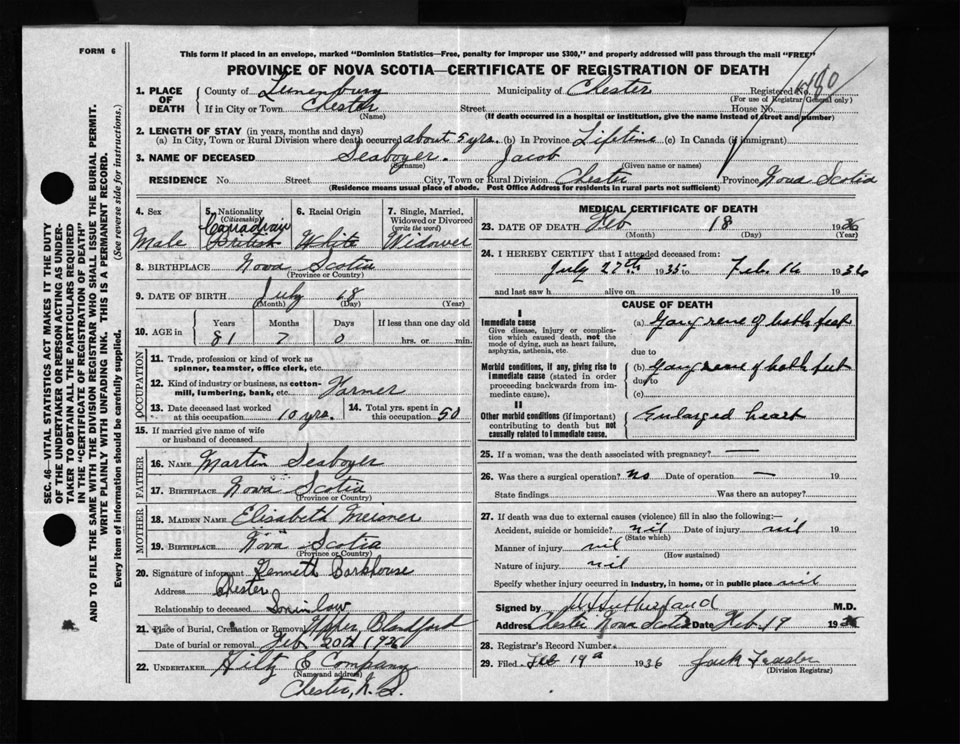 FORM 6
This form if placed in an envelope, marked "Dominion Statistics—Free, penalty for improper use $300," and properly addressed will pass through the mail "FREE"
PROVINCE OF NOVA SCOTIA—CERTIFICATE OF REGISTRATION OF DEATH
1. PLACE OF DEATH County of Lunenburg Municipality of Chester Registered No.
(For use of Registrar General only)
If in City or Town Chester Street House No.
(Name) (If death occurred in a hospital or institution, give the name instead of street and number)
2. LENGTH OF STAY (in years, months and days)
(a) In City, Town or Rural Division where death occurred about 5 yrs. (b) In Province Lifetime (c) In Canada (if immigrant)
3. NAME OF DECEASED Seaboyer. Jacob
(Surname) (Given name or names)
RESIDENCE No. Street City, Town or Rural Division Chester Province Nova Scotia
(Residence means usual place of abode. Post Office Address for residents in rural parts not sufficient)
4. Sex Male
5. Nationality (Citizenship) Canadian British
6. Racial Origin White
7. Single, Married, Widowed or Divorced (write the word) Widower
8. BIRTHPLACE Nova Scotia
(Province or Country)
9. DATE OF BIRTH July 18
(Month) (Day) (Year)
10. AGE in Years Months Days If less than one day old
81 7 0 hrs. or min.
OCCUPATION
11. Trade, profession or kind of work as spinner, teamster, office clerk, etc.
12. Kind of industry or business, as cotton-mill, lumbering, bank, etc. Farmer
13. Date deceased last worked at this occupation 10 yrs.
14. Total yrs. spent in this occupation 50
15. If married give name of wife or husband of deceased
FATHER
16. NAME Martin Seaboyer
17. BIRTHPLACE Nova Scotia
(Province or Country)
MOTHER
18. MAIDEN NAME Elisabeth Meisner
19. BIRTHPLACE Nova Scotia
(Province or Country)
20. Signature of informant Kenneth Barkhouse
Address Chester
Relationship to deceased Soninlaw
21. Place of Burial, Cremation or Removal Upper Blandford
Date of burial or removal Feb 20th 1936
22. UNDERTAKER Hiltz & Company
(Name and address)
Chester, N. S.
MEDICAL CERTIFICATE OF DEATH
23. DATE OF DEATH Feb 18 1936
(Month) (Day) (Year)
24. I HEREBY CERTIFY that I attended deceased from
July 27th 1935 to Feb. 16 1936
and last saw h alive on 19
CAUSE OF DEATH
I
Immediate cause
Give disease, injury or complication which caused death, not the mode of dying, such as heart failure, asphyxia, asthenia, etc.
(a) Gangrene of both feet
due to
Morbid conditions, if any, giving rise to immediate cause (stated in order proceeding backwards from immediate cause).
(b) Gangrene of both feet
due to
(c)
II
Other morbid conditions (if important) contributing to death but not causally related to immediate cause.
Enlarged heart
25. If a woman, was the death associated with pregnancy? —
26. Was there a surgical operation? no Date of operation — 19
State findings Was there an autopsy?
27. If death was due to external causes (violence) fill in also the following:—
Accident, suicide or homicide? nil Date of injury nil 19
(State which)
Manner of injury nil
(How sustained)
Nature of injury nil
Specify whether injury occurred in industry, in home, or in public place nil
Signed by M.D.
Address Chester Nova Scotia Date Feb 19 19
28. Registrar's Record Number
29. Filed Feb 19 1936 Jack
(Division Registrar)
SEC. 46—VITAL STATISTICS ACT MAKES IT THE DUTY
OF THE UNDERTAKER OR PERSON ACTING AS UNDER-
TAKER TO OBTAIN ALL THE PARTICULARS REQUIRED
IN THE "CERTIFICATE OF REGISTRATION OF DEATH"
AND TO FILE THE SAME WITH THE DIVISION REGISTRAR WHO SHALL ISSUE THE BURIAL PERMIT.
WRITE PLAINLY WITH UNFADING INK. THIS IS A PERMANENT RECORD.
Every item of information should be carefully supplied. (See reverse side for instructions.)